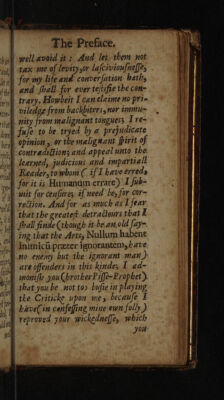 The Preface.
well avoid it: And let them not
tax me of levity, or lasciviousnesse,
for my life and conversation hath,
and shall for ever testifie the con-
trary. Howbeit I can claime no pri-
viledge from backbiters, nor immu-
nity from malignant tongues; I re-
fuse to be tryed by a prejudicate
opinion, or the malignant spirit of
contradiction; and appeal unto the
learned, judicious and impartiall
Reader, to whom (if I have erred,
for it is Humanum errare) I sub-
mit for censure, if need be, for cor-
rection. And for as much as I fear
that the greatest detractours that I
shall finde (though it be an old say-
ing that the Arts, Nullum habent
Inimicū præter ignorantem, have
no enemy but the ignorant man)
are offenders in this kinde; I ad-
monish you (brother Pisse-Prophet)
that you be not too busie in playing
the Criticke upon me, because I
have (in confessing mine own folly)
reproved your wickednesse, which
you